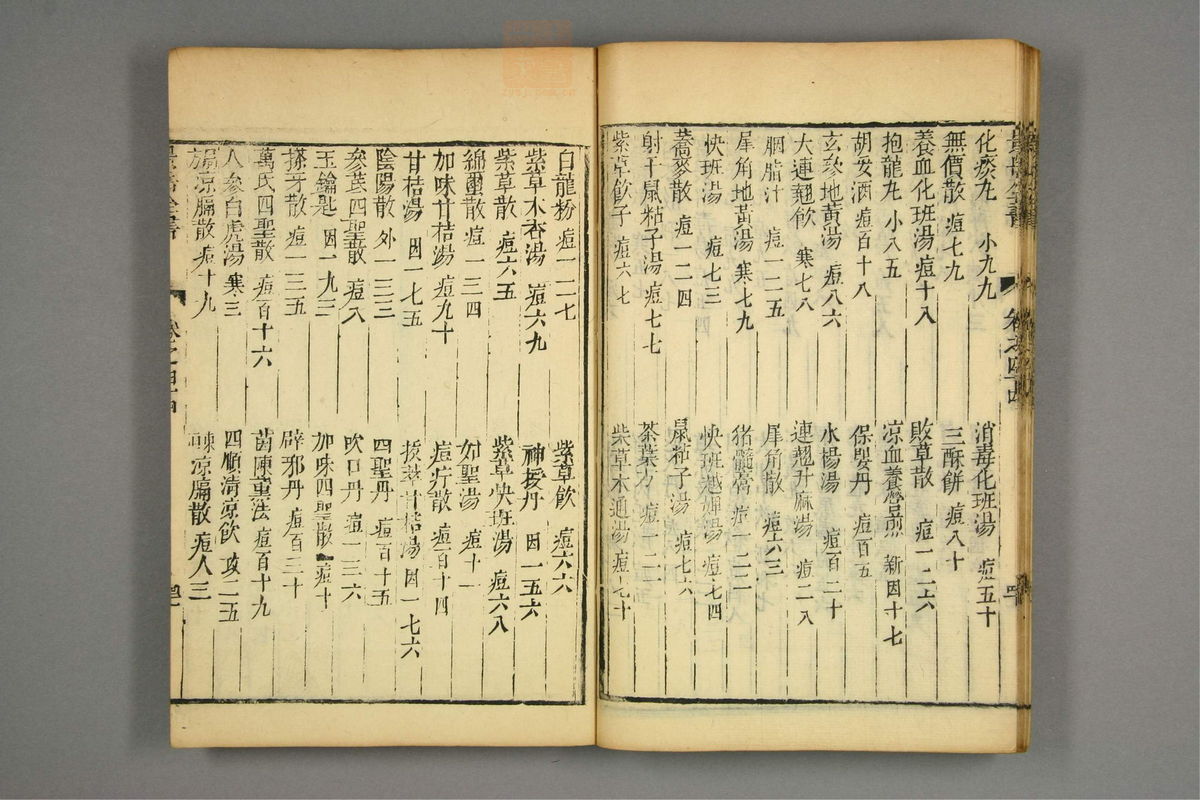 景岳全書 卷之四十四
化痰丸 小九九 消毒化班湯 痘五十
無價散 痘七九 三酥餅 痘八十
養血化班湯 痘十八 敗草散 痘一二六
抱龍丸 小八五 凉血養營煎 新因十七
胡荽酒 痘百十八 保嬰丹 痘百五
玄參地黃湯 痘八六 水楊湯 痘百二十
大連翹飲 寒七八 連翹升麻湯 痘二八
胭脂汁 痘一二五 犀角散 痘六三
犀角地黃湯 寒七九 猪髓膏 痘一二二
快班湯 痘七三 快班越婢湯 痘七四
蕎麥散 痘一二四 鼠粘子湯 痘七六
射干鼠粘子湯 痘七七 茶葉方 痘一二一
紫草飲子 痘六七 柴草木通湯 痘七十
白龍粉 痘一二七 紫草飲 痘六六
紫草木香湯 痘六九 神授丹 因一五六
紫草散 痘六五 紫草快班湯 痘六八
綿璽散 痘一三四 如聖湯 痘十一
加味甘桔湯 痘九十 痘疔散 痘百十四
甘桔湯 因一七五 甘桔湯 因一七六
陰陽散 外一三三 四聖丹 痘百十五
參芪四聖散 痘八 吹口丹 痘一三六
玉鑰匙 因一九三 加味四聖散 痘十
搽牙散 痘一三五 辟邪丹 痘百三十
萬氏四聖散 痘百十六 茵陳熏法 痘百十九
人參白虎湯 寒三 四順清凉飲 攻二五
凉膈散 痘十九 凉膈散 痘八三
全書 卷之四十四